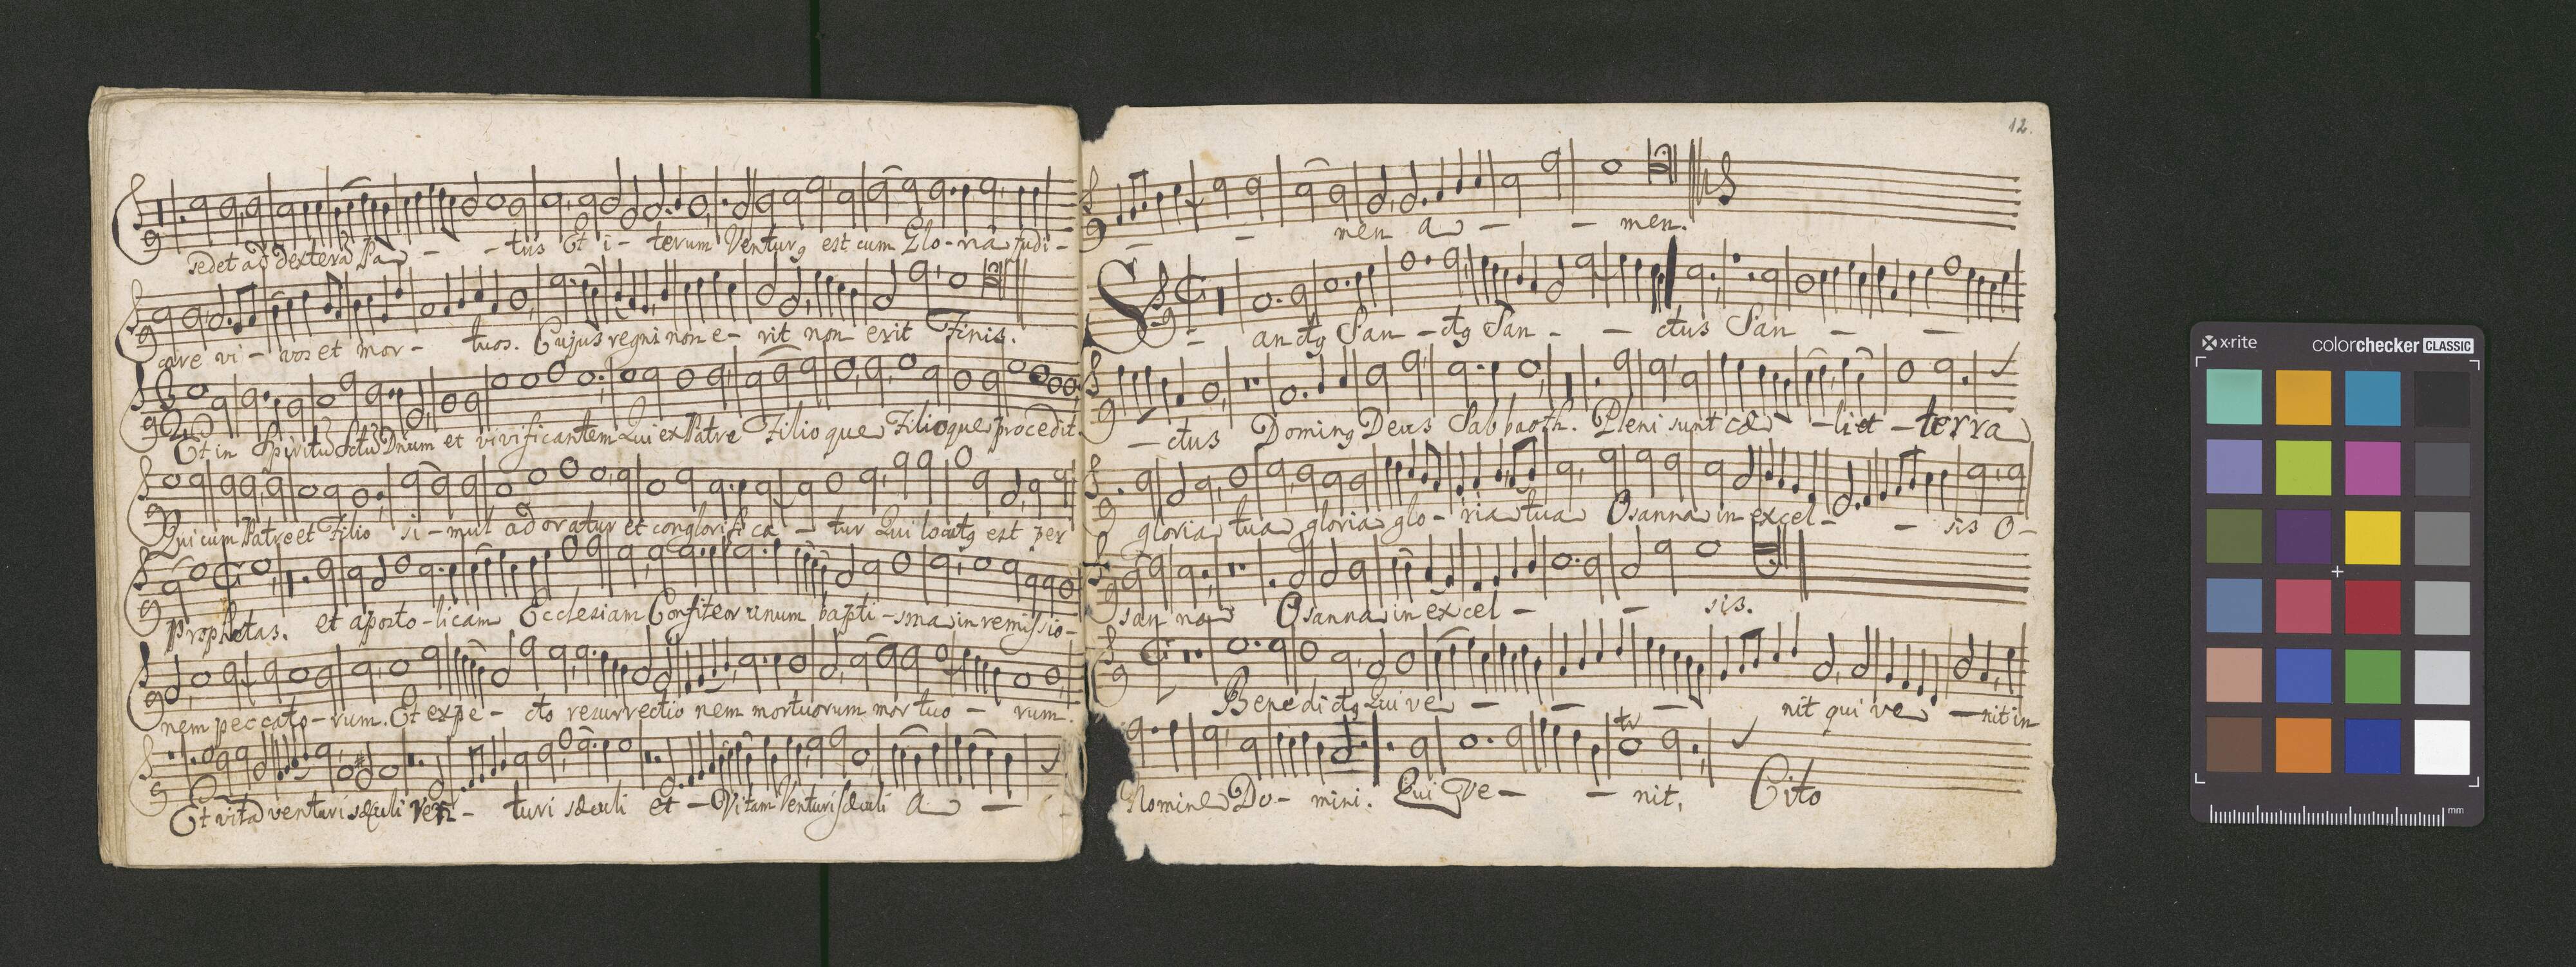 sedet ad dexterã Pa - - tris Et i - terum Venturꝯ est cum Glo - ria judi -
care vi - vos et mor - tuos. Cujus regni non e - rit non erit Finis.
Et in Spiritũ Sctũ Dñum et vivificantem Qui ex Patre Filioque Filioque procedit.
Qui cum Patre et Filio si - mul adoratur et conglorifica - tur Qui locutꝯ est per
Prophetas. et aposto - licam Ecclesiam Confiteor unum bapti - sma in remissio -
nem peccato - rum. Et expe - cto resurrectio nem mortuorum mortuo - rum.
Et vitã venturi sæculi Ven - turi sæculi et - Vitam Venturi sæculi A - -
12.
- - men a - - men.
San ctꝯ San - ctꝯ San - - ctus San - -
- ctus Dominꝯ Deus Sabbaoth. Pleni sunt cæ - li et - terra
gloria tua gloria glo - ria tua Osanna in excel - - sis O -
san na Osanna in excel - - sis.
Benedictꝯ Qui ve - - - nit qui ve - nit in
Nomine Do - mini. Qui Ve - - nit, Cito
x-rite
colorchecker CLASSIC
mm